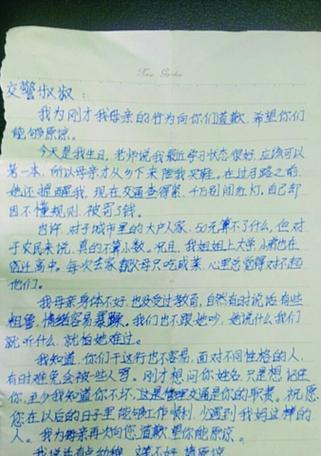 交警叔叔：
我为刚才我母亲的行为向你们道歉，希望你们
能够原谅。
今天是我生日，老师说我最近学习状态很好，应该可以
第一本，所以母亲才从乡下来陪我买鞋。在过马路之前，
她还提醒我，现在交通查得紧，千万别闯红灯，自己却
因不懂规则，被罚了钱。
也许，对于城市里的大户人家，50元算不了什么，但对
于农民来说，真的不算小数。况且，我姐姐上大学
高中。每次去家 父母只吃咸菜，心里总觉得对不起
他们。
我母亲身体不好，也没受过教育，自然有时说话有些
粗鲁，情绪容易暴躁。我们也不跟她吵，她说什么我们
就听什么，就怕她难过。
我知道，你们干这行也不容易，面对不同性格的人，
有时难免会被一些人骂。刚才想问你姓名，只是想记住
你，至少我知道你不坏，这是 交通是你的职责。祝愿
您在以后的日子里能够工作顺利，少遇到我妈这样的
人。我为母亲再次向您道歉，望你能原谅。